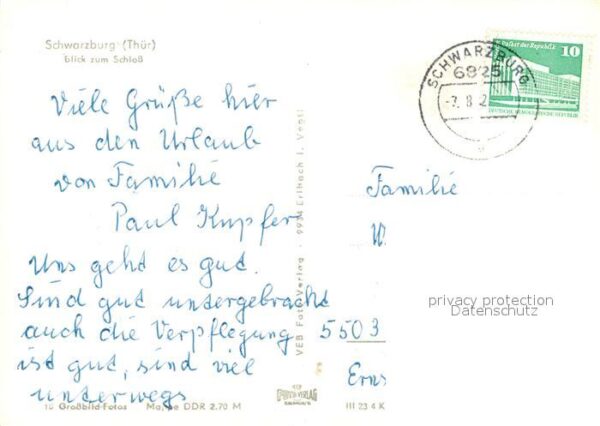 Schwarzburg (Thür)
Blick zum Schloß
Viele Grüße hier
aus den Urlaub
von Familie
Paul Kupfer
Uns geht es gut.
Sind gut untergebracht
auch die Verpflegung
ist gut, sind viel
unterwegs
10 Großbild-Fotos Mappe DDR 2.70 M
VEB Foto-Verlag · 9934 Erlbach i. Vogtl
FOTO VERLAG
III 23 4 K
Palast der Republik 10
DEUTSCHE DEMOKRATISCHE REPUBLIK
SCHWARZBURG
6825
-7. 8. 2
Familie
W.
privacy protection
Datenschutz
5503
Erns